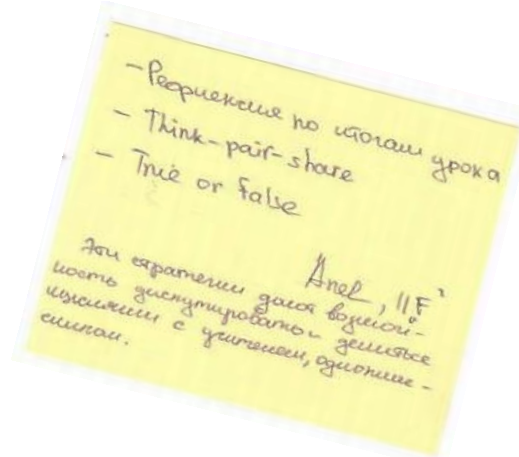 - Рефлексия по итогам урока
- Think-pair-share
- True or False
Anel, 11F
Эти стратегии дают возмож-
ность дискутировать и делиться
мыслями с учителем, однокла-
ссником.